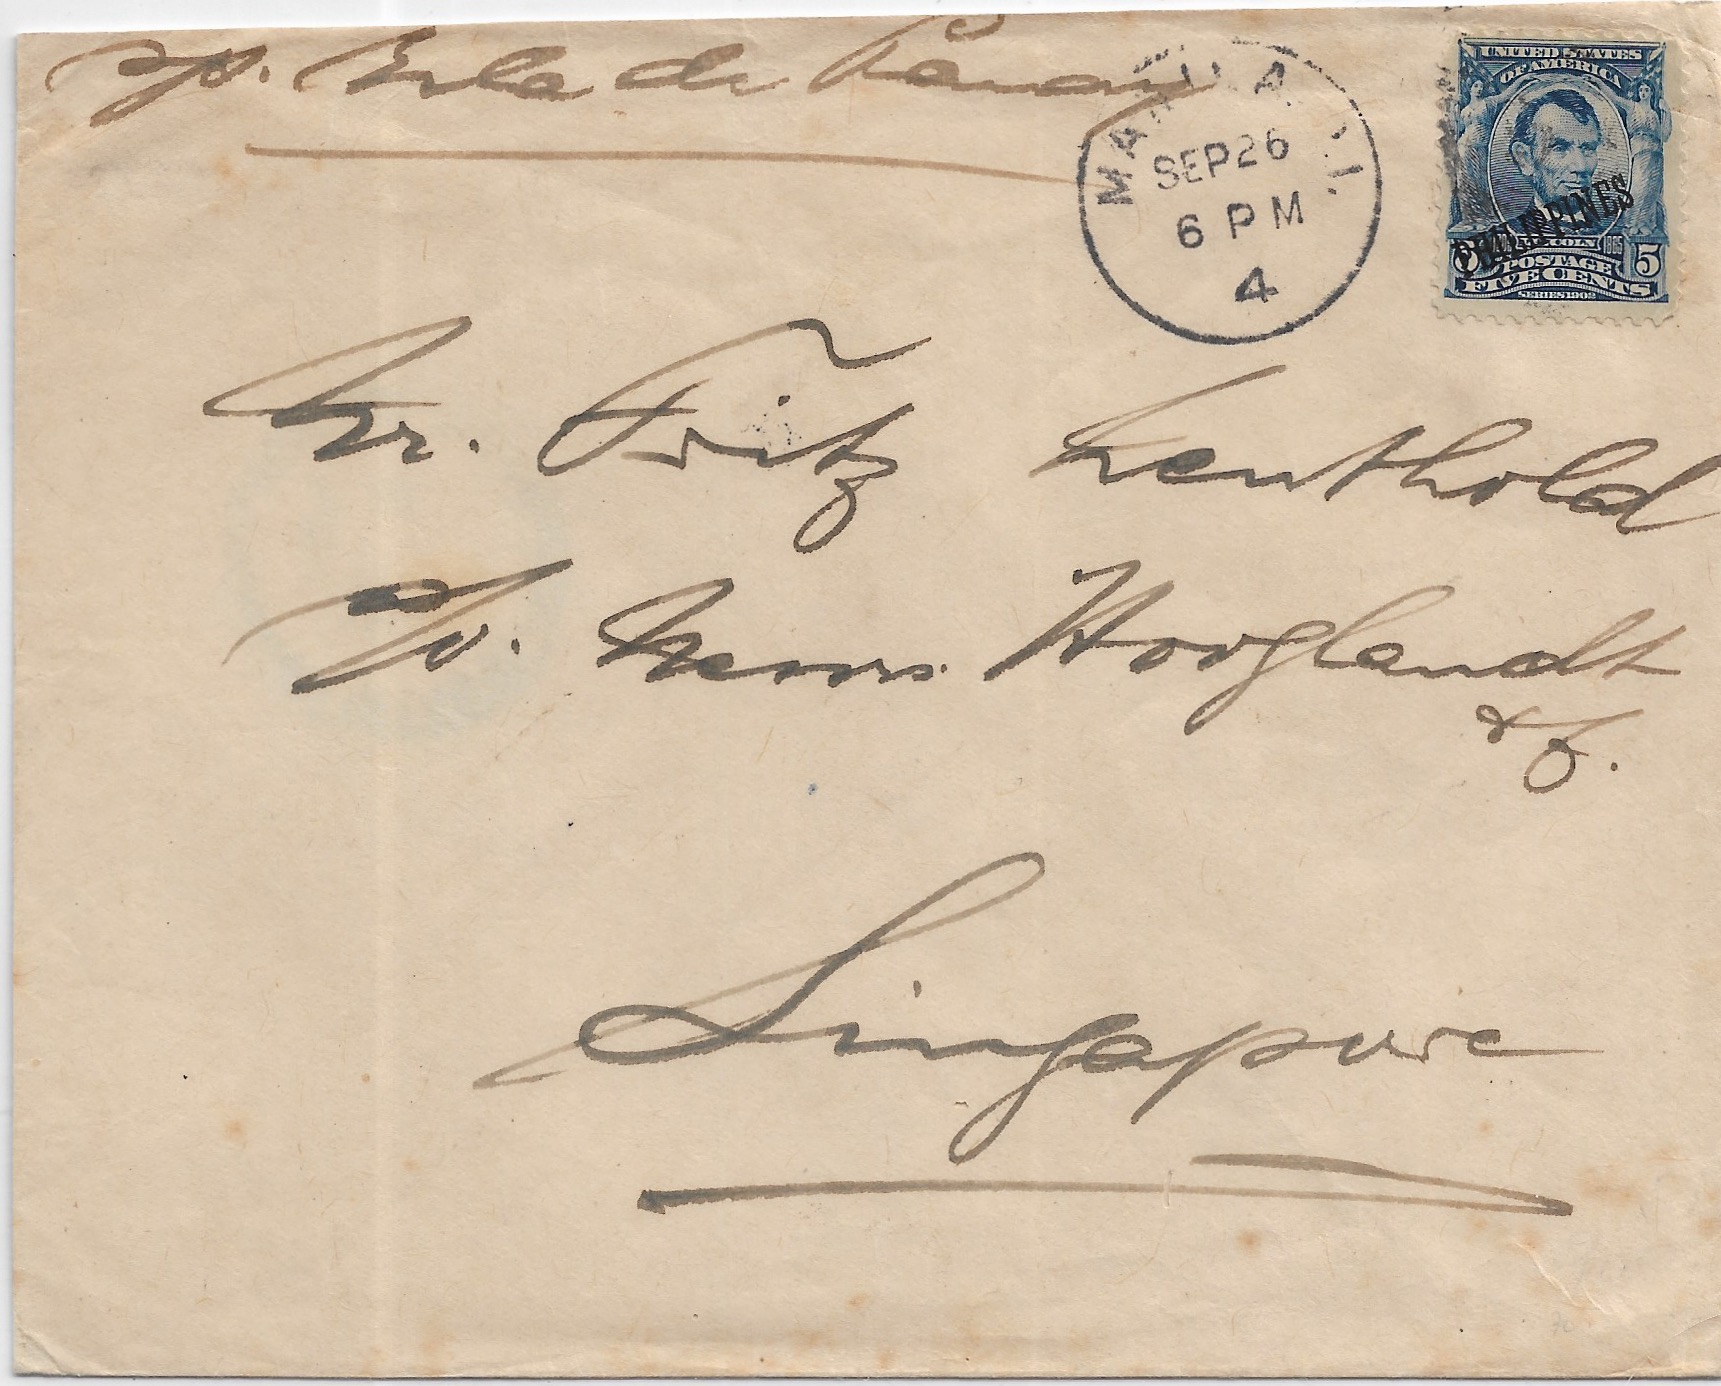 pr. Isla de Panay
MANILA P.I.
SEP 26
6 PM
4
UNITED STATES
OF AMERICA
PHILIPPINES
LINCOLN 1865
5 POSTAGE 5
FIVE CENTS
SERIES 1902
Mr. Fritz Leuthold
Messrs. Hooglandt
& Co.
Singapore